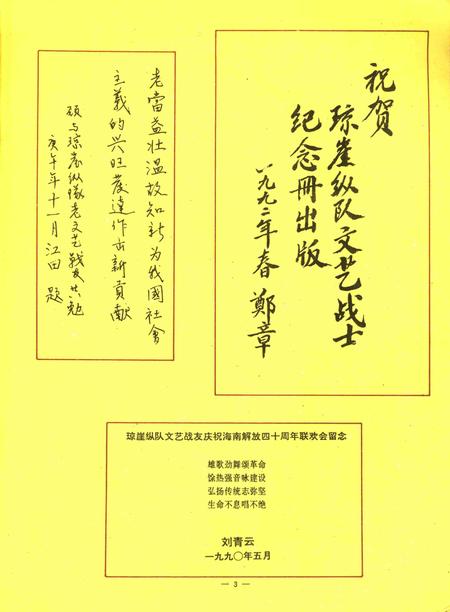 祝贺
琼崖纵队文艺战士
纪念册出版
一九九二年春 鄭章
老當益壮温故知新为我國社會
主義的兴旺發達作出新貢献
愿与琼崖纵隊老文艺战友共勉
庚午年十一月江田題
琼崖纵队文艺战友庆祝海南解放四十周年联欢会留念
雄歌劲舞颂革命
馀热强音咏建设
弘扬传统志弥坚
生命不息唱不绝
刘青云
一九九〇年五月
— 3 —